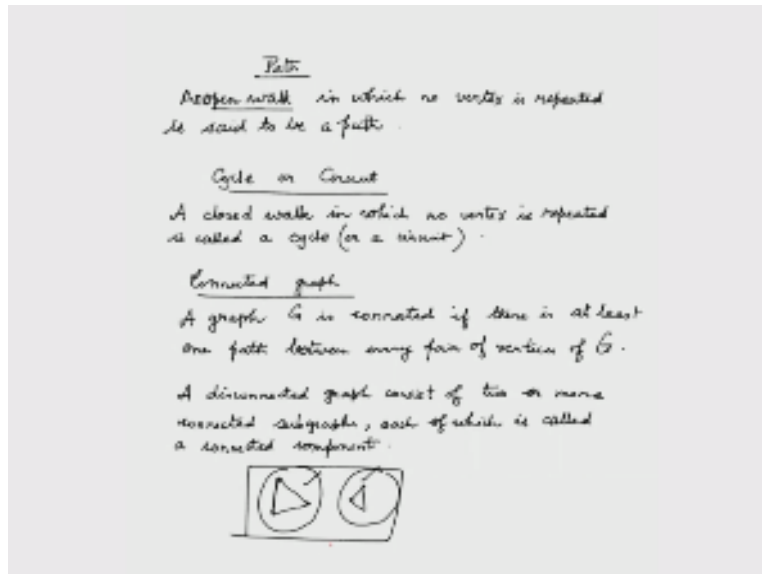 Path
An open walk in which no vertex is repeated
is said to be a path.
Cycle or Circuit
A closed walk in which no vertex is repeated
is called a cycle (or a circuit).
Connected graph
A graph G is connected if there is at least
one path between every pair of vertices of G.
A disconnected graph consist of two or more
connected subgraphs, each of which is called
a connected component.